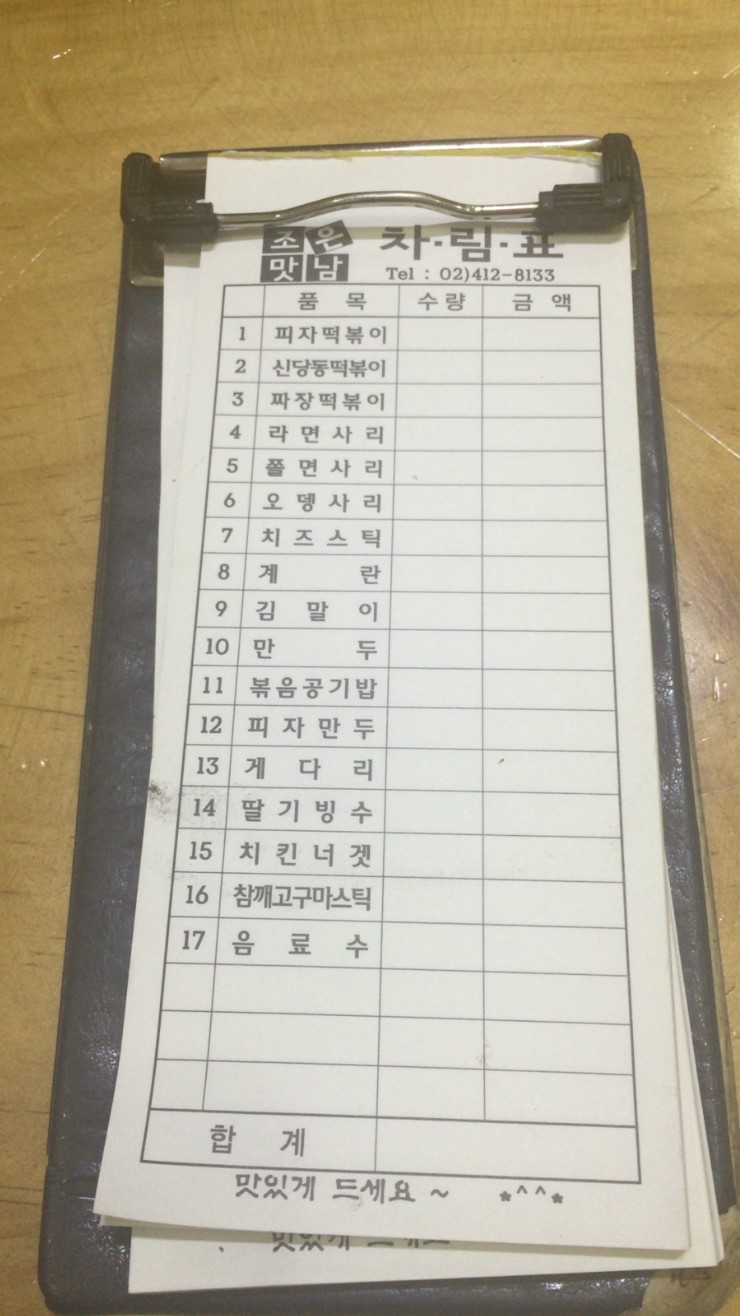 조은 차·림·표
맛남 Tel : 02)412-8133
품 목 수량 금 액
1 피자떡볶이
2 신당동떡볶이
3 짜장떡볶이
4 라면사리
5 쫄면사리
6 오뎅사리
7 치즈스틱
8 계 란
9 김 말 이
10 만 두
11 볶음공기밥
12 피자만두
13 게 다 리
14 딸기빙수
15 치킨너겟
16 참깨고구마스틱
17 음 료 수
합 계
맛있게 드세요 ~ *^^*
맛있게